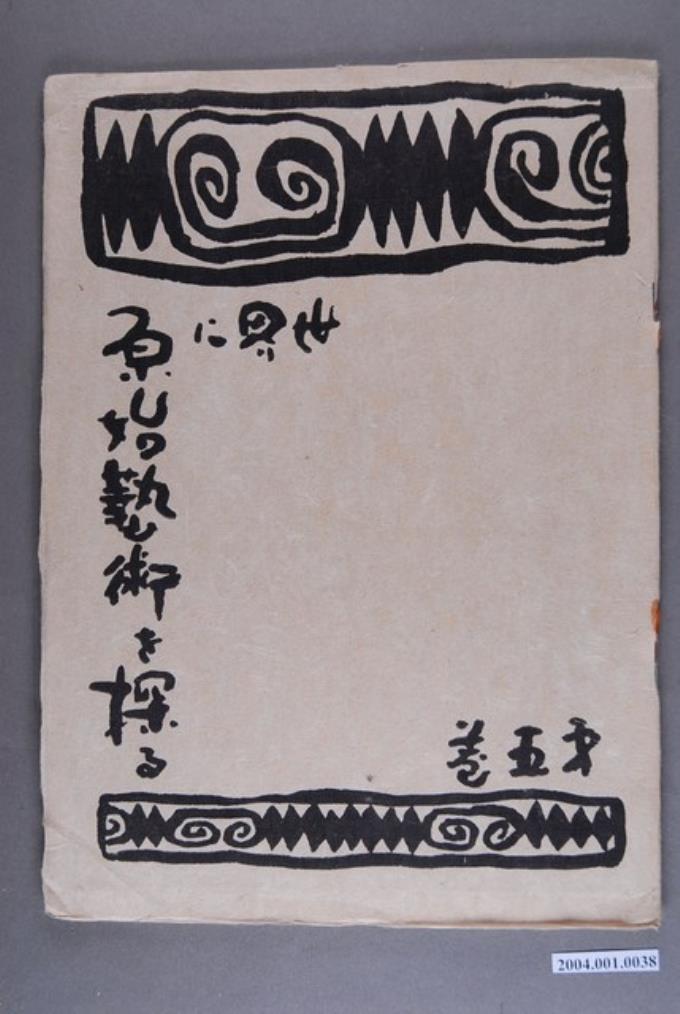 世界に
原始藝術を探る
第五巻
2004.001.0038